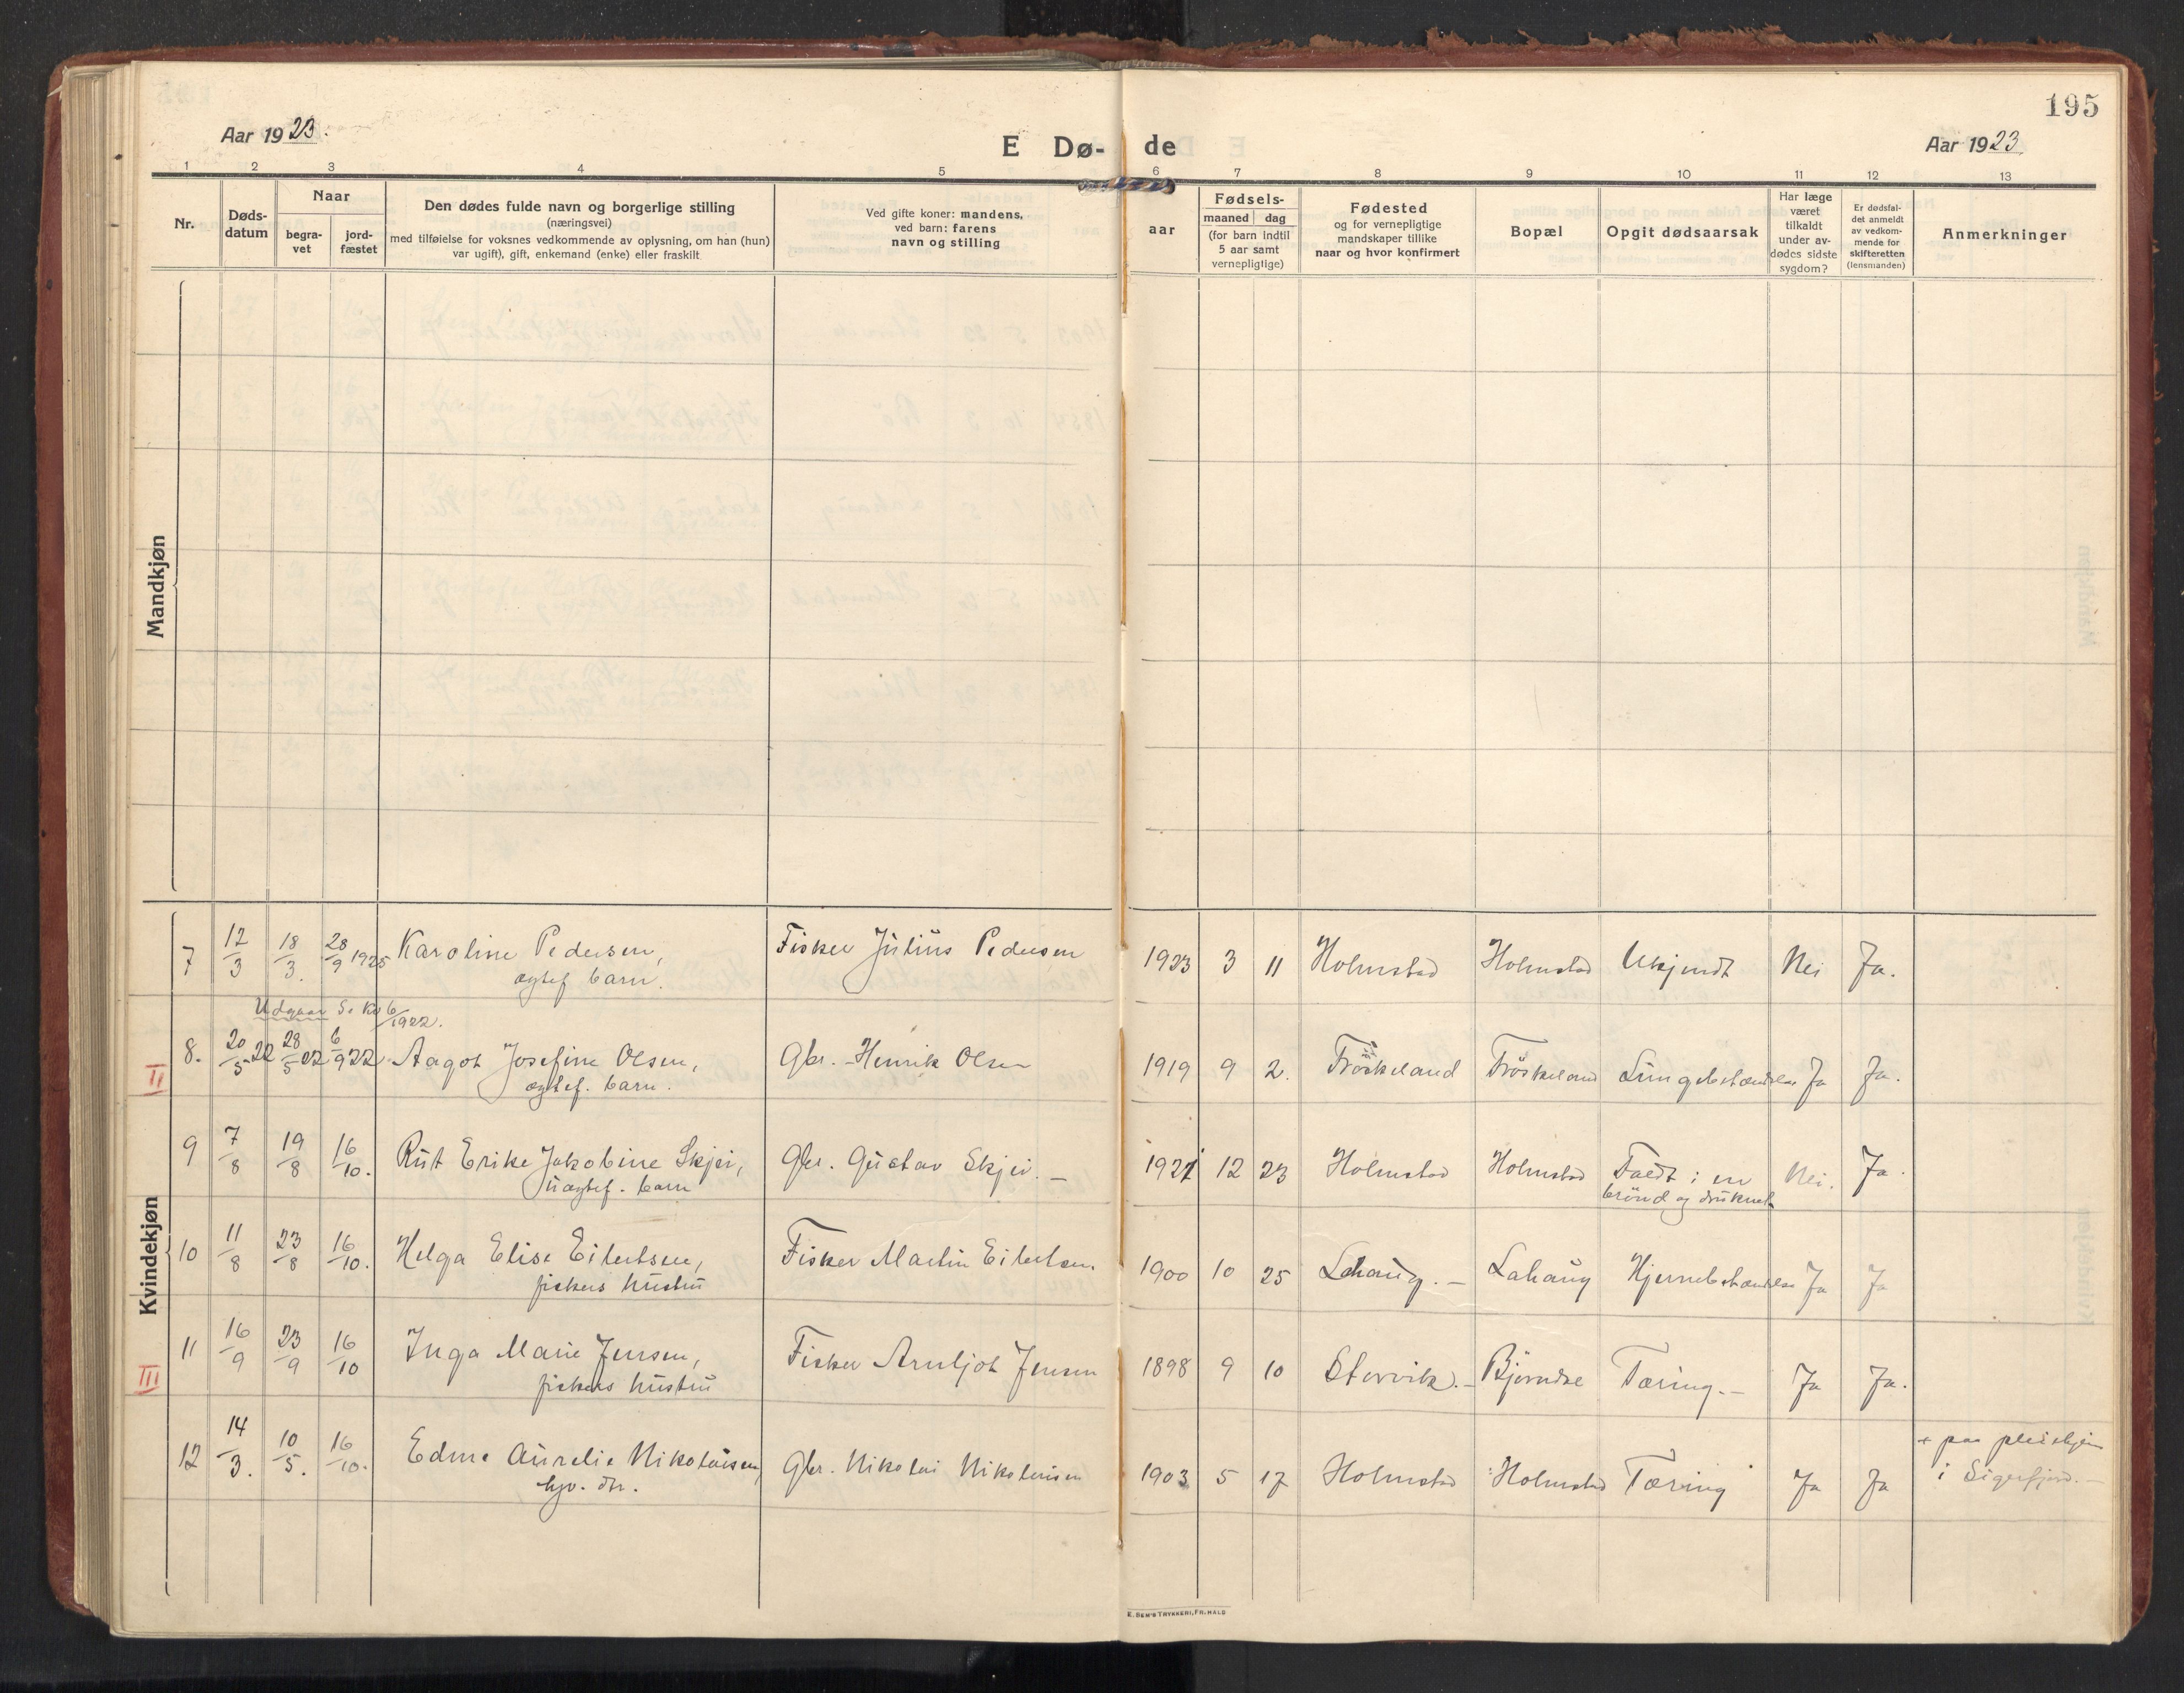 195
Aar 1923.
E Dø-de
Aar 1923
1 2 3 4 5 6 7 8 9 10 11 12 13
Nr.
Døds-
datum
Naar
begra-
vet
jord-
fæstet
Den dødes fulde navn og borgerlige stilling
(næringsvei)
med tilføielse for voksnes vedkommende av oplysning, om han (hun)
var ugift), gift, enkemand (enke) eller fraskilt
Ved gifte koner: mandens,
ved barn: farens
navn og stilling
aar
Fødsels-
maaned dag
(for barn indtil
5 aar samt
vernepligtige)
Fødested
og for vernepligtige
mandskaper tillike
naar og hvor konfirmert
Bopæl
Opgit dødsaarsak
Har læge
været
tilkaldt
under av-
dødes sidste
sygdom?
Er dødsfal-
det anmeldt
av vedkom-
mende for
skifteretten
(lensmanden)
Anmerkninger
Mandkjøn
Kvindekjøn
7 12/3 18/3. 28/9 1925 Karoline Pedersen, Fisker Julius Pedersen 1923 3 11 Holmstad Holmstad Ukjendt Nei Ja.
ægtef barn.
Udgaar Se Kv 6/1922.
II
8. 20/5 22 28/5 22 6/9 22. Aagot Josefine Olsen, Gbr. Henrik Olsen 1919 9 2. Fröskeland Fröskeland Lungebetændelse Ja Ja.
ægtef. barn.
9 7/8 19/8 16/10. Rut Erike Jakobine Skjei, Gbr. Gustav Skjei. – 1921 12 23 Holmstad Holmstad Faldt i en Nei. Ja.
uægtef. barn
brönd og druknet
10 11/8 23/8 16/10. Helga Elise Eilertsen, Fisker Martin Eilertsen. 1900 10 25 Lahaug. – Lahaug Hjernebetændelse Ja Ja
fiskers hustru
III
11 16/9 23/9 16/10 Inga Marie Jensen, Fisker Arnljot Jensen 1898 9 10 Storvik. – Björndse Tæring. – Ja Ja.
fiskers hustru
12 14/3. 10/5. 16/10. Edine Aurelie Nikolaisen, Gbr. Nikolai Nikolaisen 1903 5 17 Holmstad Holmstad Tæring Ja Ja + paa pleiehjem
i Sigerfjord. –
hjv. dtr.
E. SEM'S TRYKKERI, FR.HALD